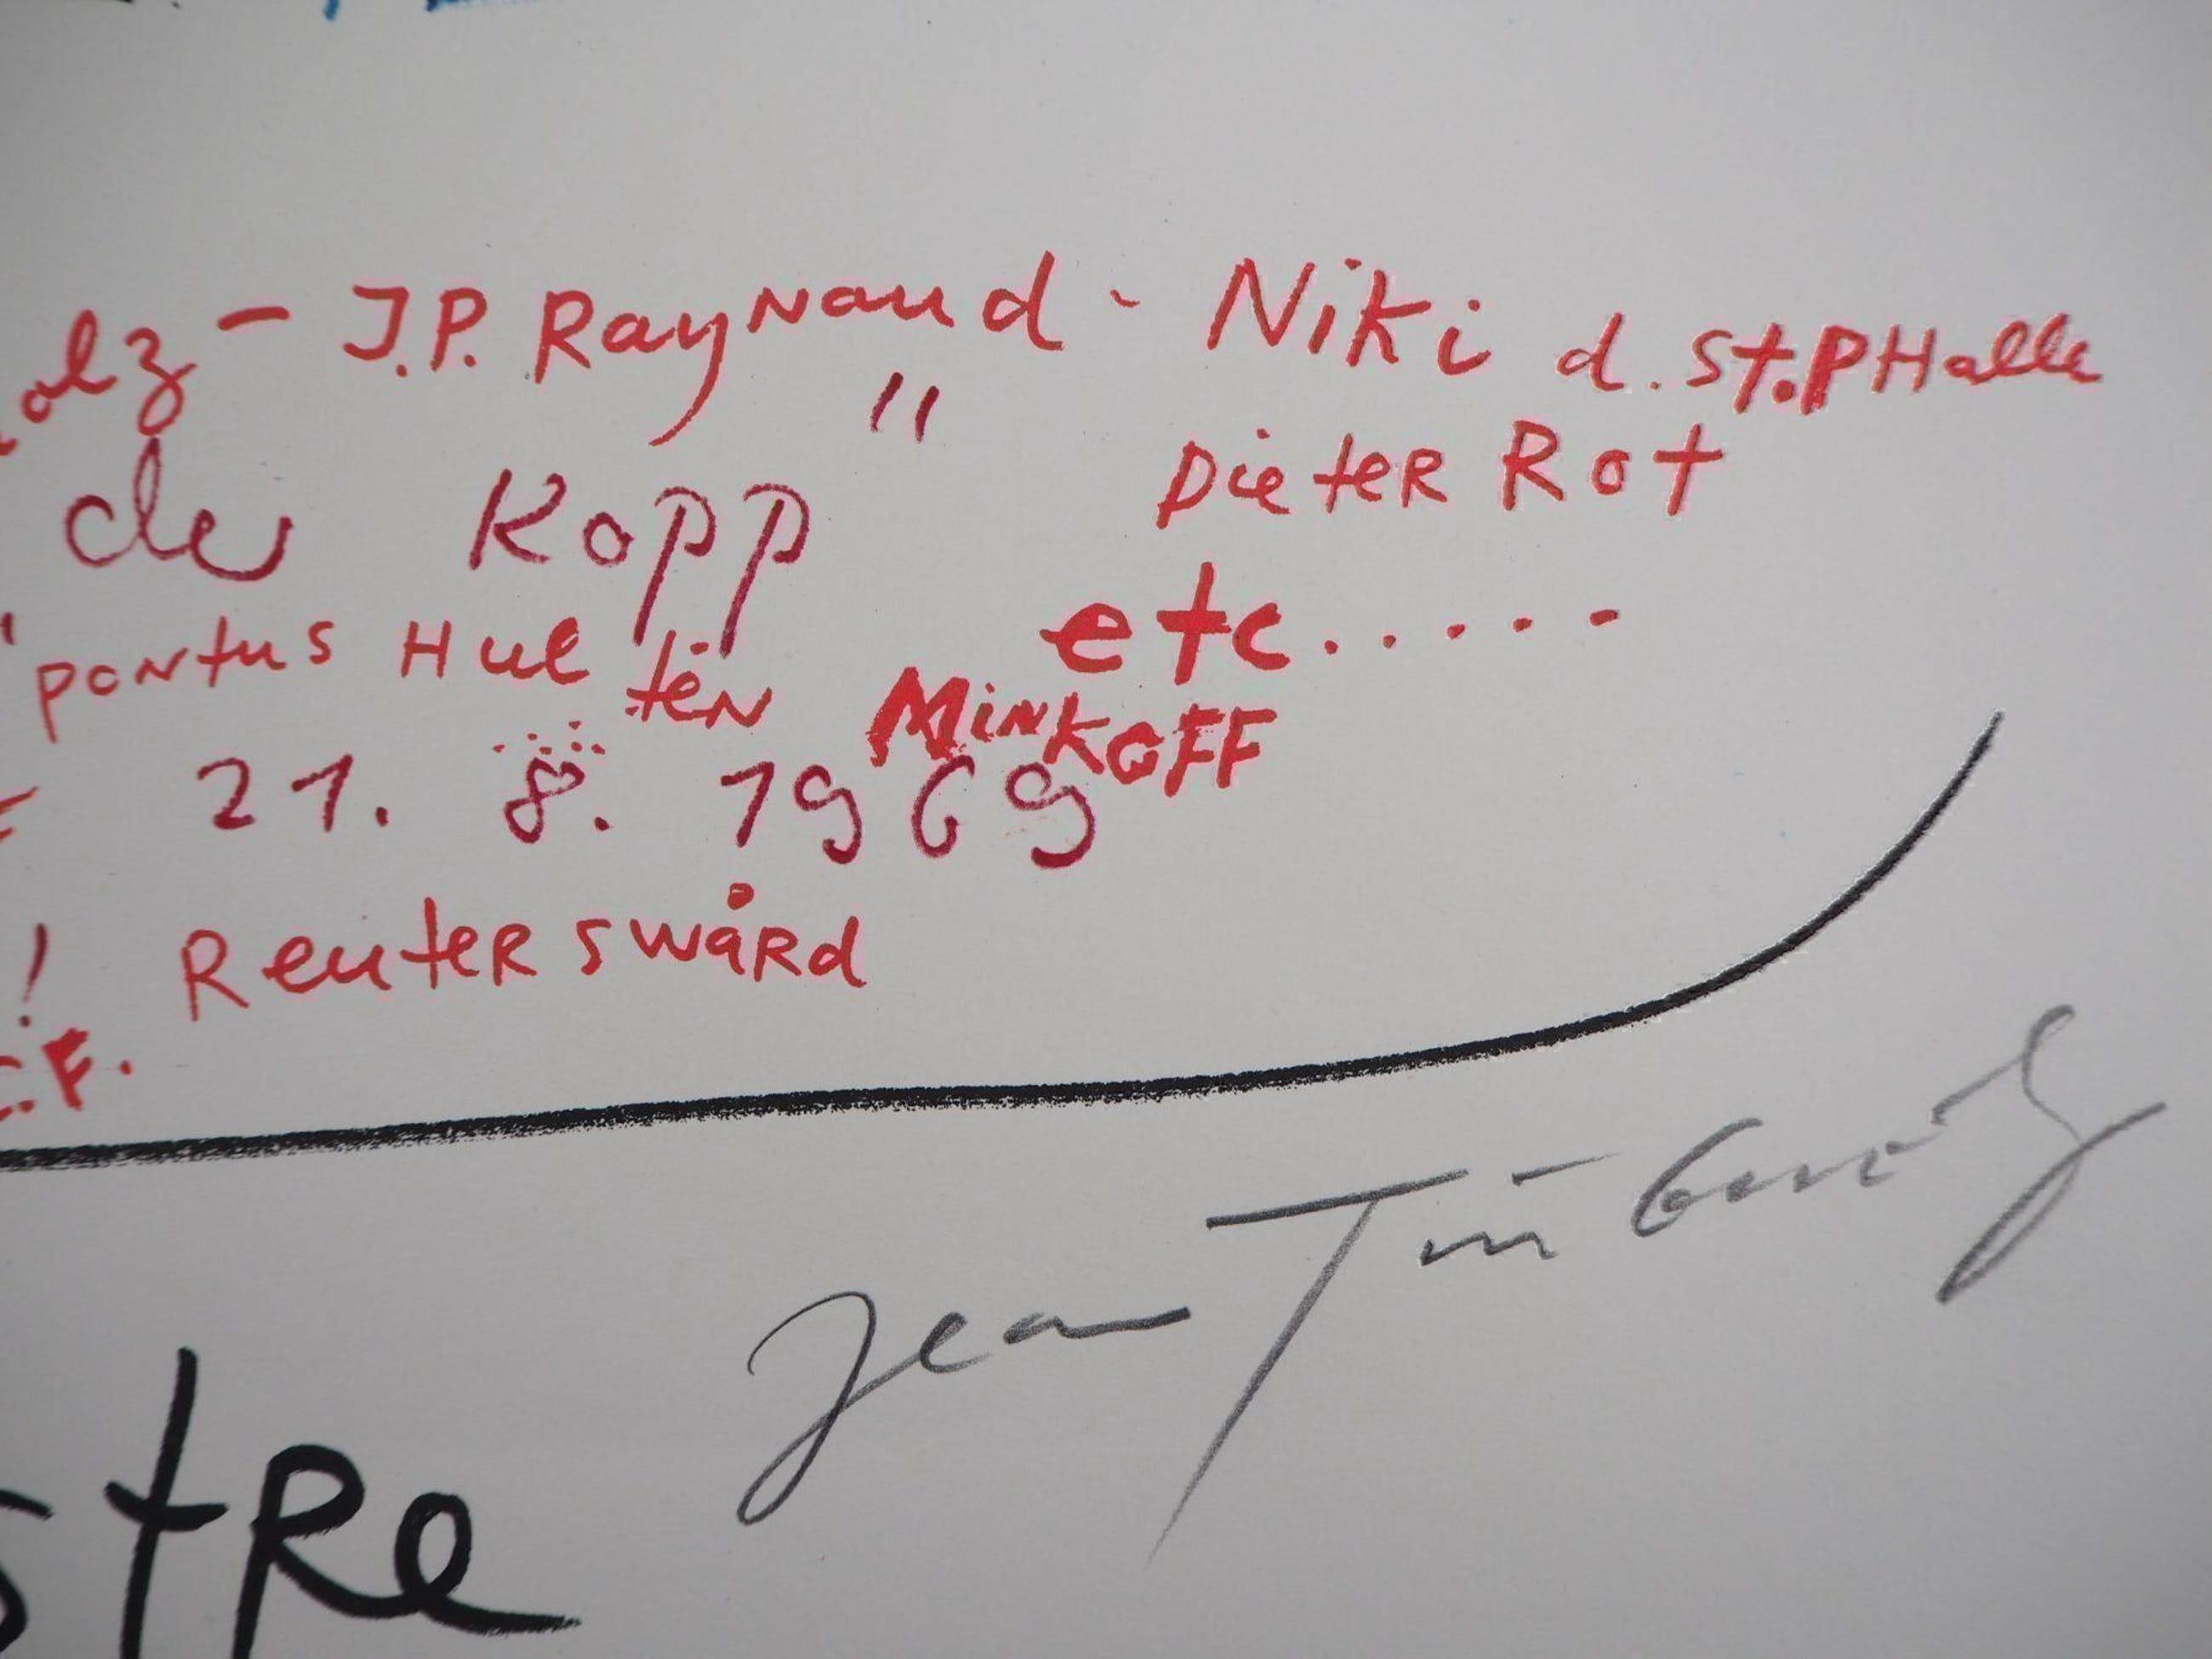 olz - J.P. Raynaud - Niki d. St. PHalle
de Kopp " Dieter Rot
etc.....
"Pontus Hulten Minkoff
21. 8. 1969
! Reuterswård
F.
Jean Tinguely
stRe